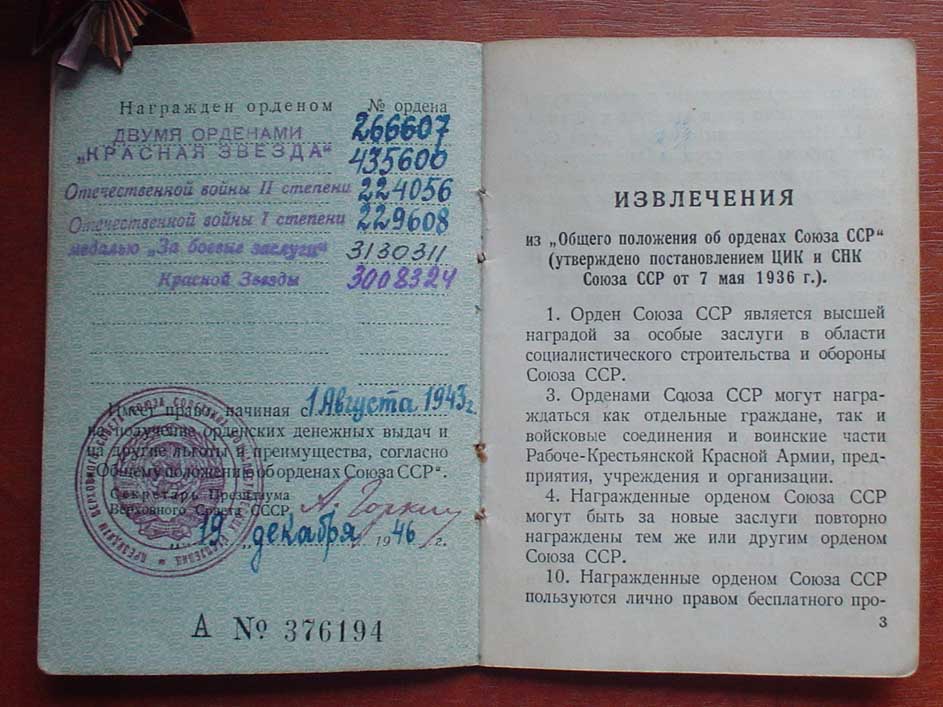 Награжден орденом № ордена
ДВУМЯ ОРДЕНАМИ 266607
„КРАСНАЯ ЗВЕЗДА“ 435600
Отечественной войны II степени 224056
Отечественной войны I степени 229608
медалью „За боевые заслуги“ 3130311
Красной Звезды 3008324
Имеет право, начиная с 1 Августа 1943 г.
на получение орденских денежных выдач и
на другие льготы и преимущества, согласно
„Общему положению об орденах Союза ССР“.
Секретарь Президиума
Верховного Совета СССР А. Горкин
„19“ декабря 1946 г.
А № 376194
ИЗВЛЕЧЕНИЯ
из „Общего положения об орденах Союза ССР“
(утверждено постановлением ЦИК и СНК
Союза ССР от 7 мая 1936 г.).
1. Орден Союза ССР является высшей
наградой за особые заслуги в области
социалистического строительства и обороны
Союза ССР.
3. Орденами Союза ССР могут награ-
ждаться как отдельные граждане, так и
войсковые соединения и воинские части
Рабоче-Крестьянской Красной Армии, пред-
приятия, учреждения и организации.
4. Награжденные орденом Союза ССР
могут быть за новые заслуги повторно
награждены тем же или другим орденом
Союза ССР.
10. Награжденные орденом Союза ССР
пользуются лично правом бесплатного про-
3